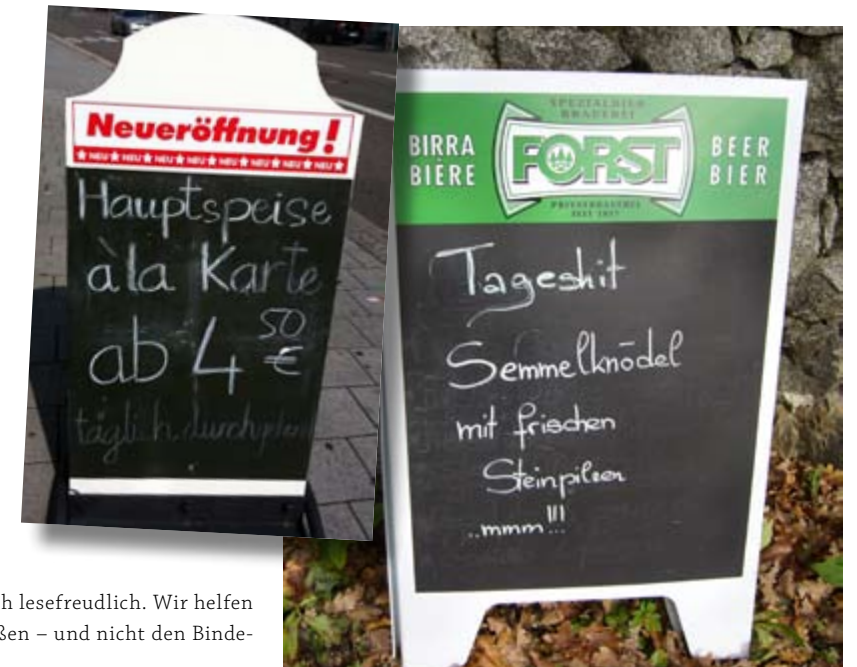 Neueröffnung!
NEU NEU NEU NEU NEU NEU NEU NEU
Hauptspeise
à la Karte
ab 4 50 €
täglich
BIRRA
BIÈRE
SPEZIALBIER
BRAUEREI
FORST
BEER
BIER
Tageshit
Semmelknödel
mit frischen
Steinpilzen
..mmm!!!
h lesefreudlich. Wir helfen
ßen – und nicht den Binde-